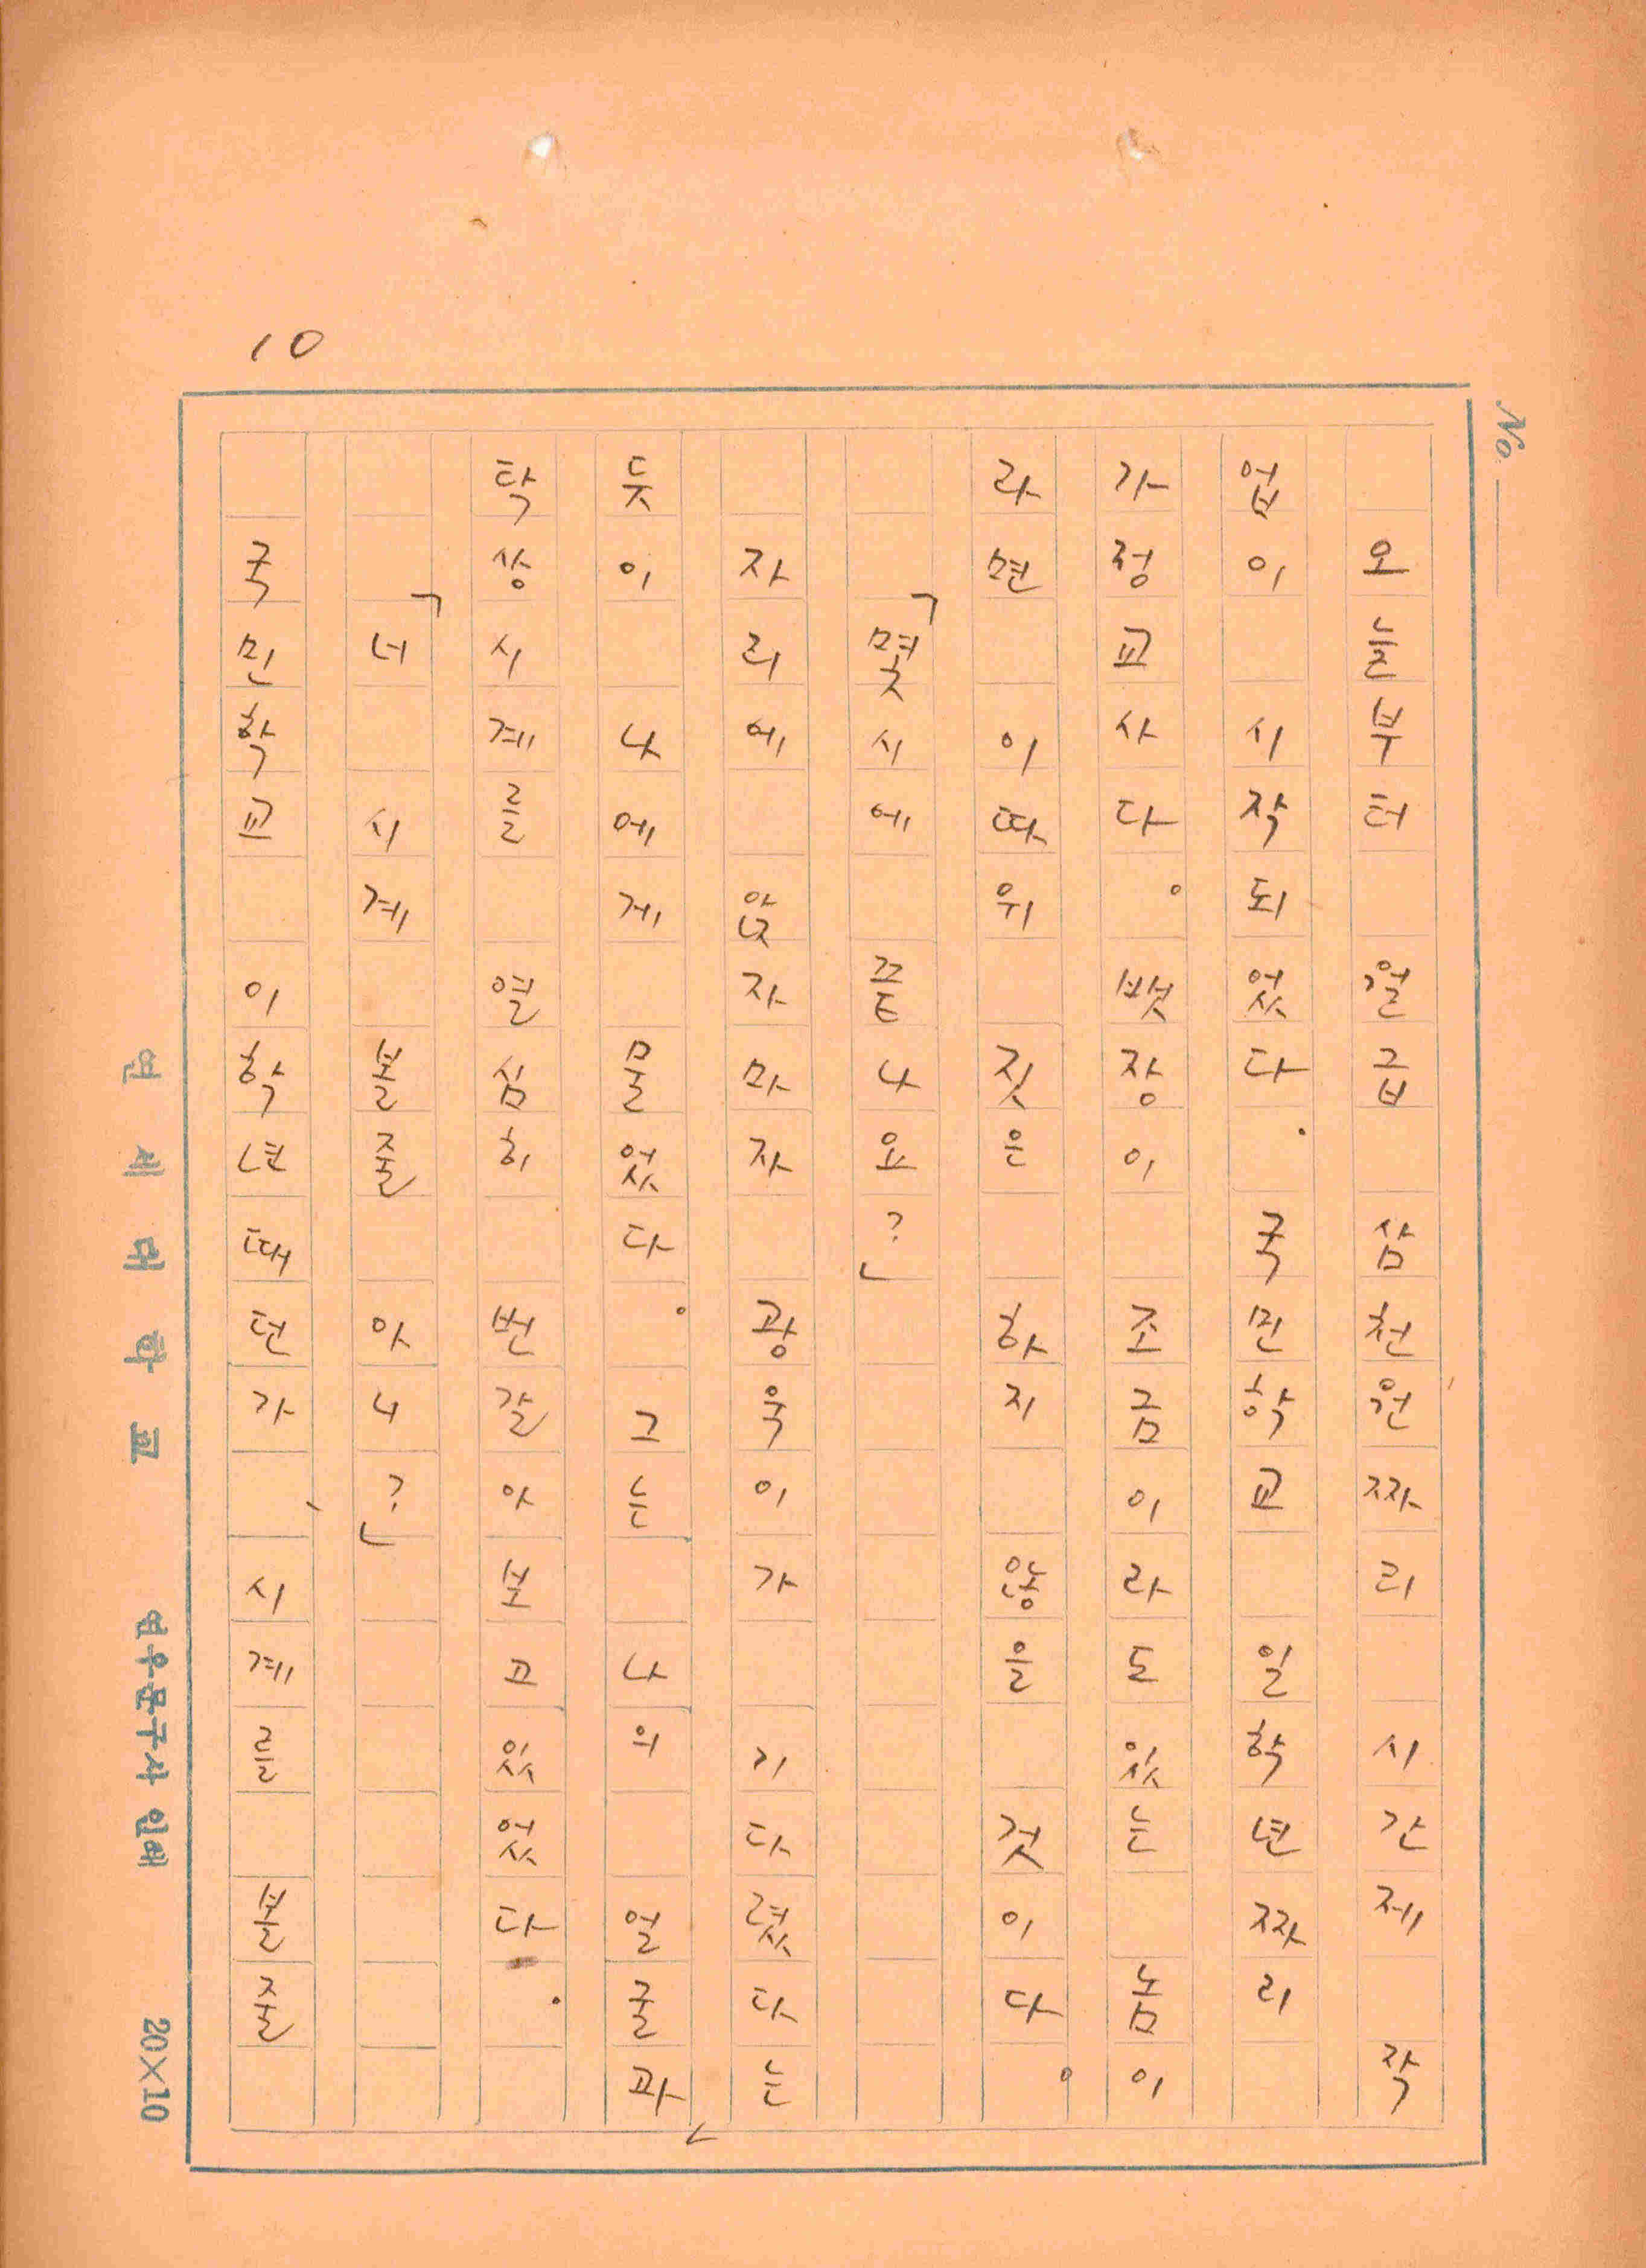 No.
10
오늘부터 월급 삼천원짜리 시간제 작
업이 시작되었다. 국민학교 일학년짜리
가정교사다. 뱃장이 조금이라도 있는 놈이
라면 이따위 짓은 하지 않을 것이다.
「몇시에 끝나요?」
자리에 앉자마자 광욱이가 기다렸다는
듯이 나에게 물었다. 그는 나의 얼굴과
탁상시계를 열심히 번갈아 보고있었다.
「너 시계 볼줄 아니?」
국민학교 이학년때던가, 시계를 볼줄
연세대학교 연우문구사 인쇄 20×10